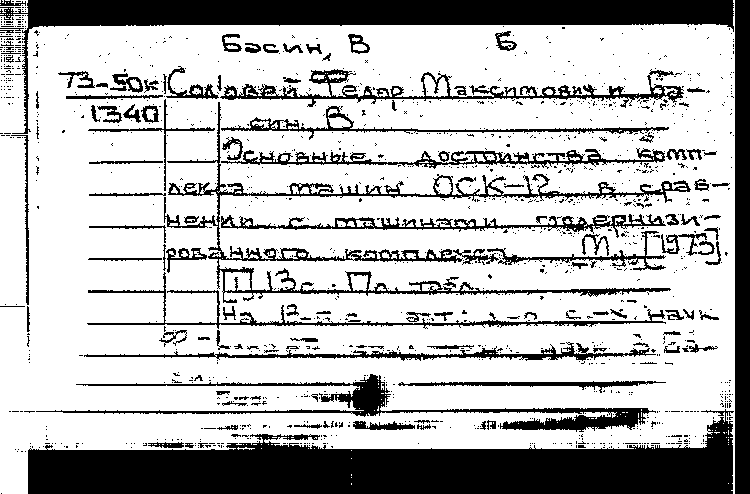 Басин, В Б
73-50к Соловей, Федор Максимович и Ба-
1340 син, В
Основные достоинства комп-
лекса машин ОСК-12 в срав-
нении с машинами модернизи-
рованного комплекса. М., [1973].
[1], 13 с. Пл. табл.
На 12-й с. авт.: к-д с.-х. наук
Ф наук В. Ба-